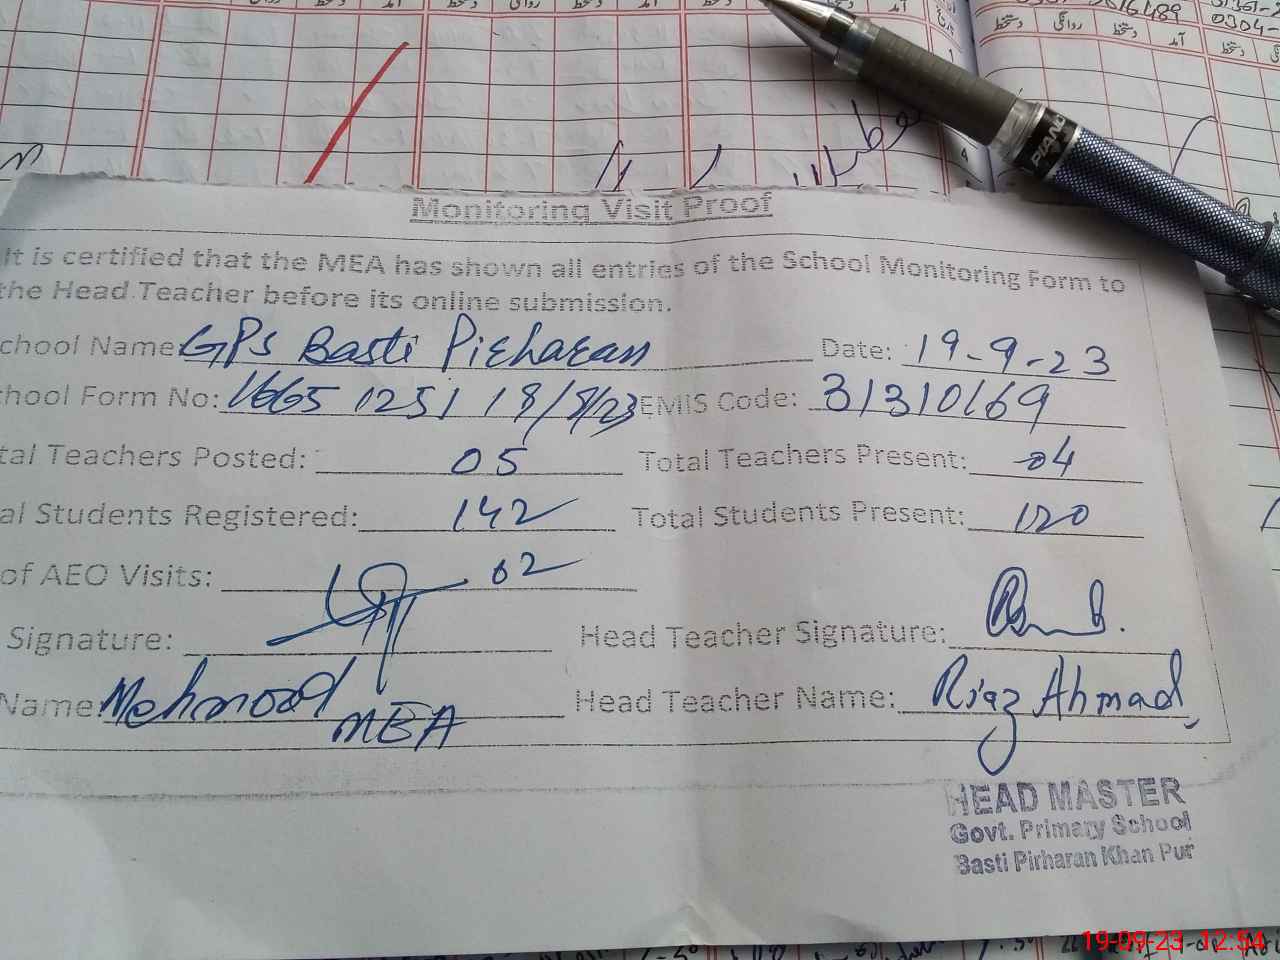 آمد
دستخط
روانگی
PIANO
4
Monitoring Visit Proof
It is certified that the MEA has shown all entries of the School Monitoring Form to
the Head Teacher before its online submission.
chool Name GPS Basti Pirharan Date: 19-9-23
hool Form No: 1665 1251 18/8/23 EMIS Code: 31310169
tal Teachers Posted: 05 Total Teachers Present: 04
al Students Registered: 142 Total Students Present: 120
of AEO Visits: 02
Signature: Head Teacher Signature:
Name: Mehmood MEA Head Teacher Name: Riaz Ahmad
HEAD MASTER
Govt. Primary School
Basti Pirharan Khan Pur
19-09-23 12:54